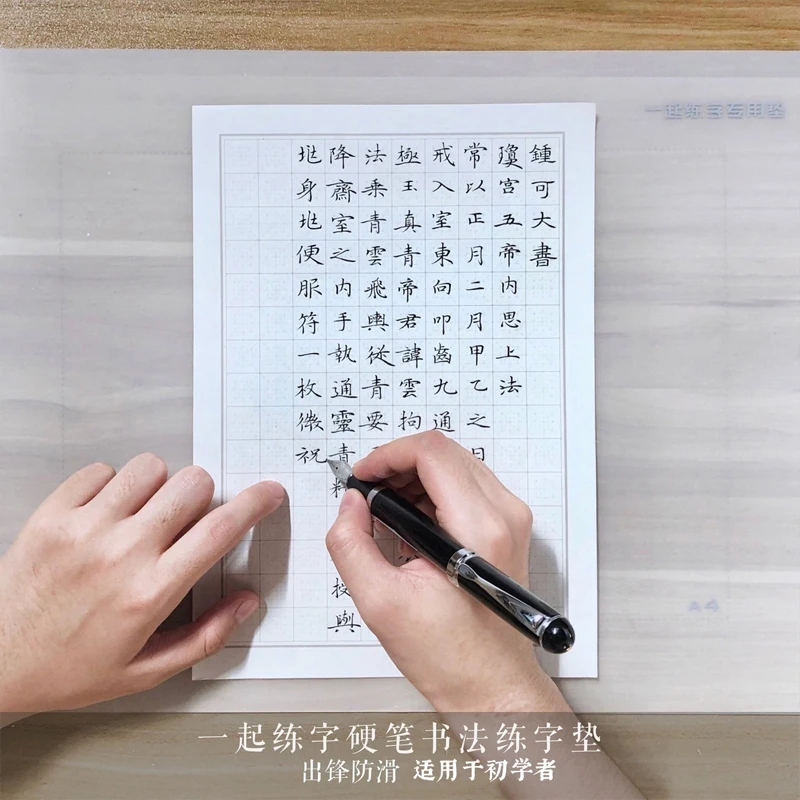 一起练字专用垫
鍾可大書
瓊宮五帝内思上法
常以正月二月甲乙之日
戒入室東向叩齒九通
極玉真青帝君諱雲拘
法乗青雲飛輿從青要
降齋室之内手執通靈青 授與
兆身兆便服符一枚微祝
A4
一起练字硬笔书法练字垫
出锋防滑 适用于初学者